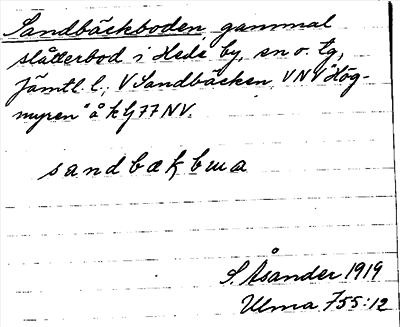 Sandbäckboden, gammal
slåtterbod i Hede by, sn o. tg,
Jämtl. l.; V Sandbäcken, VNV "Hög-
myren" å k G77 NV.
sandbækbua
S. Åsander 1919
Ulma 755:12